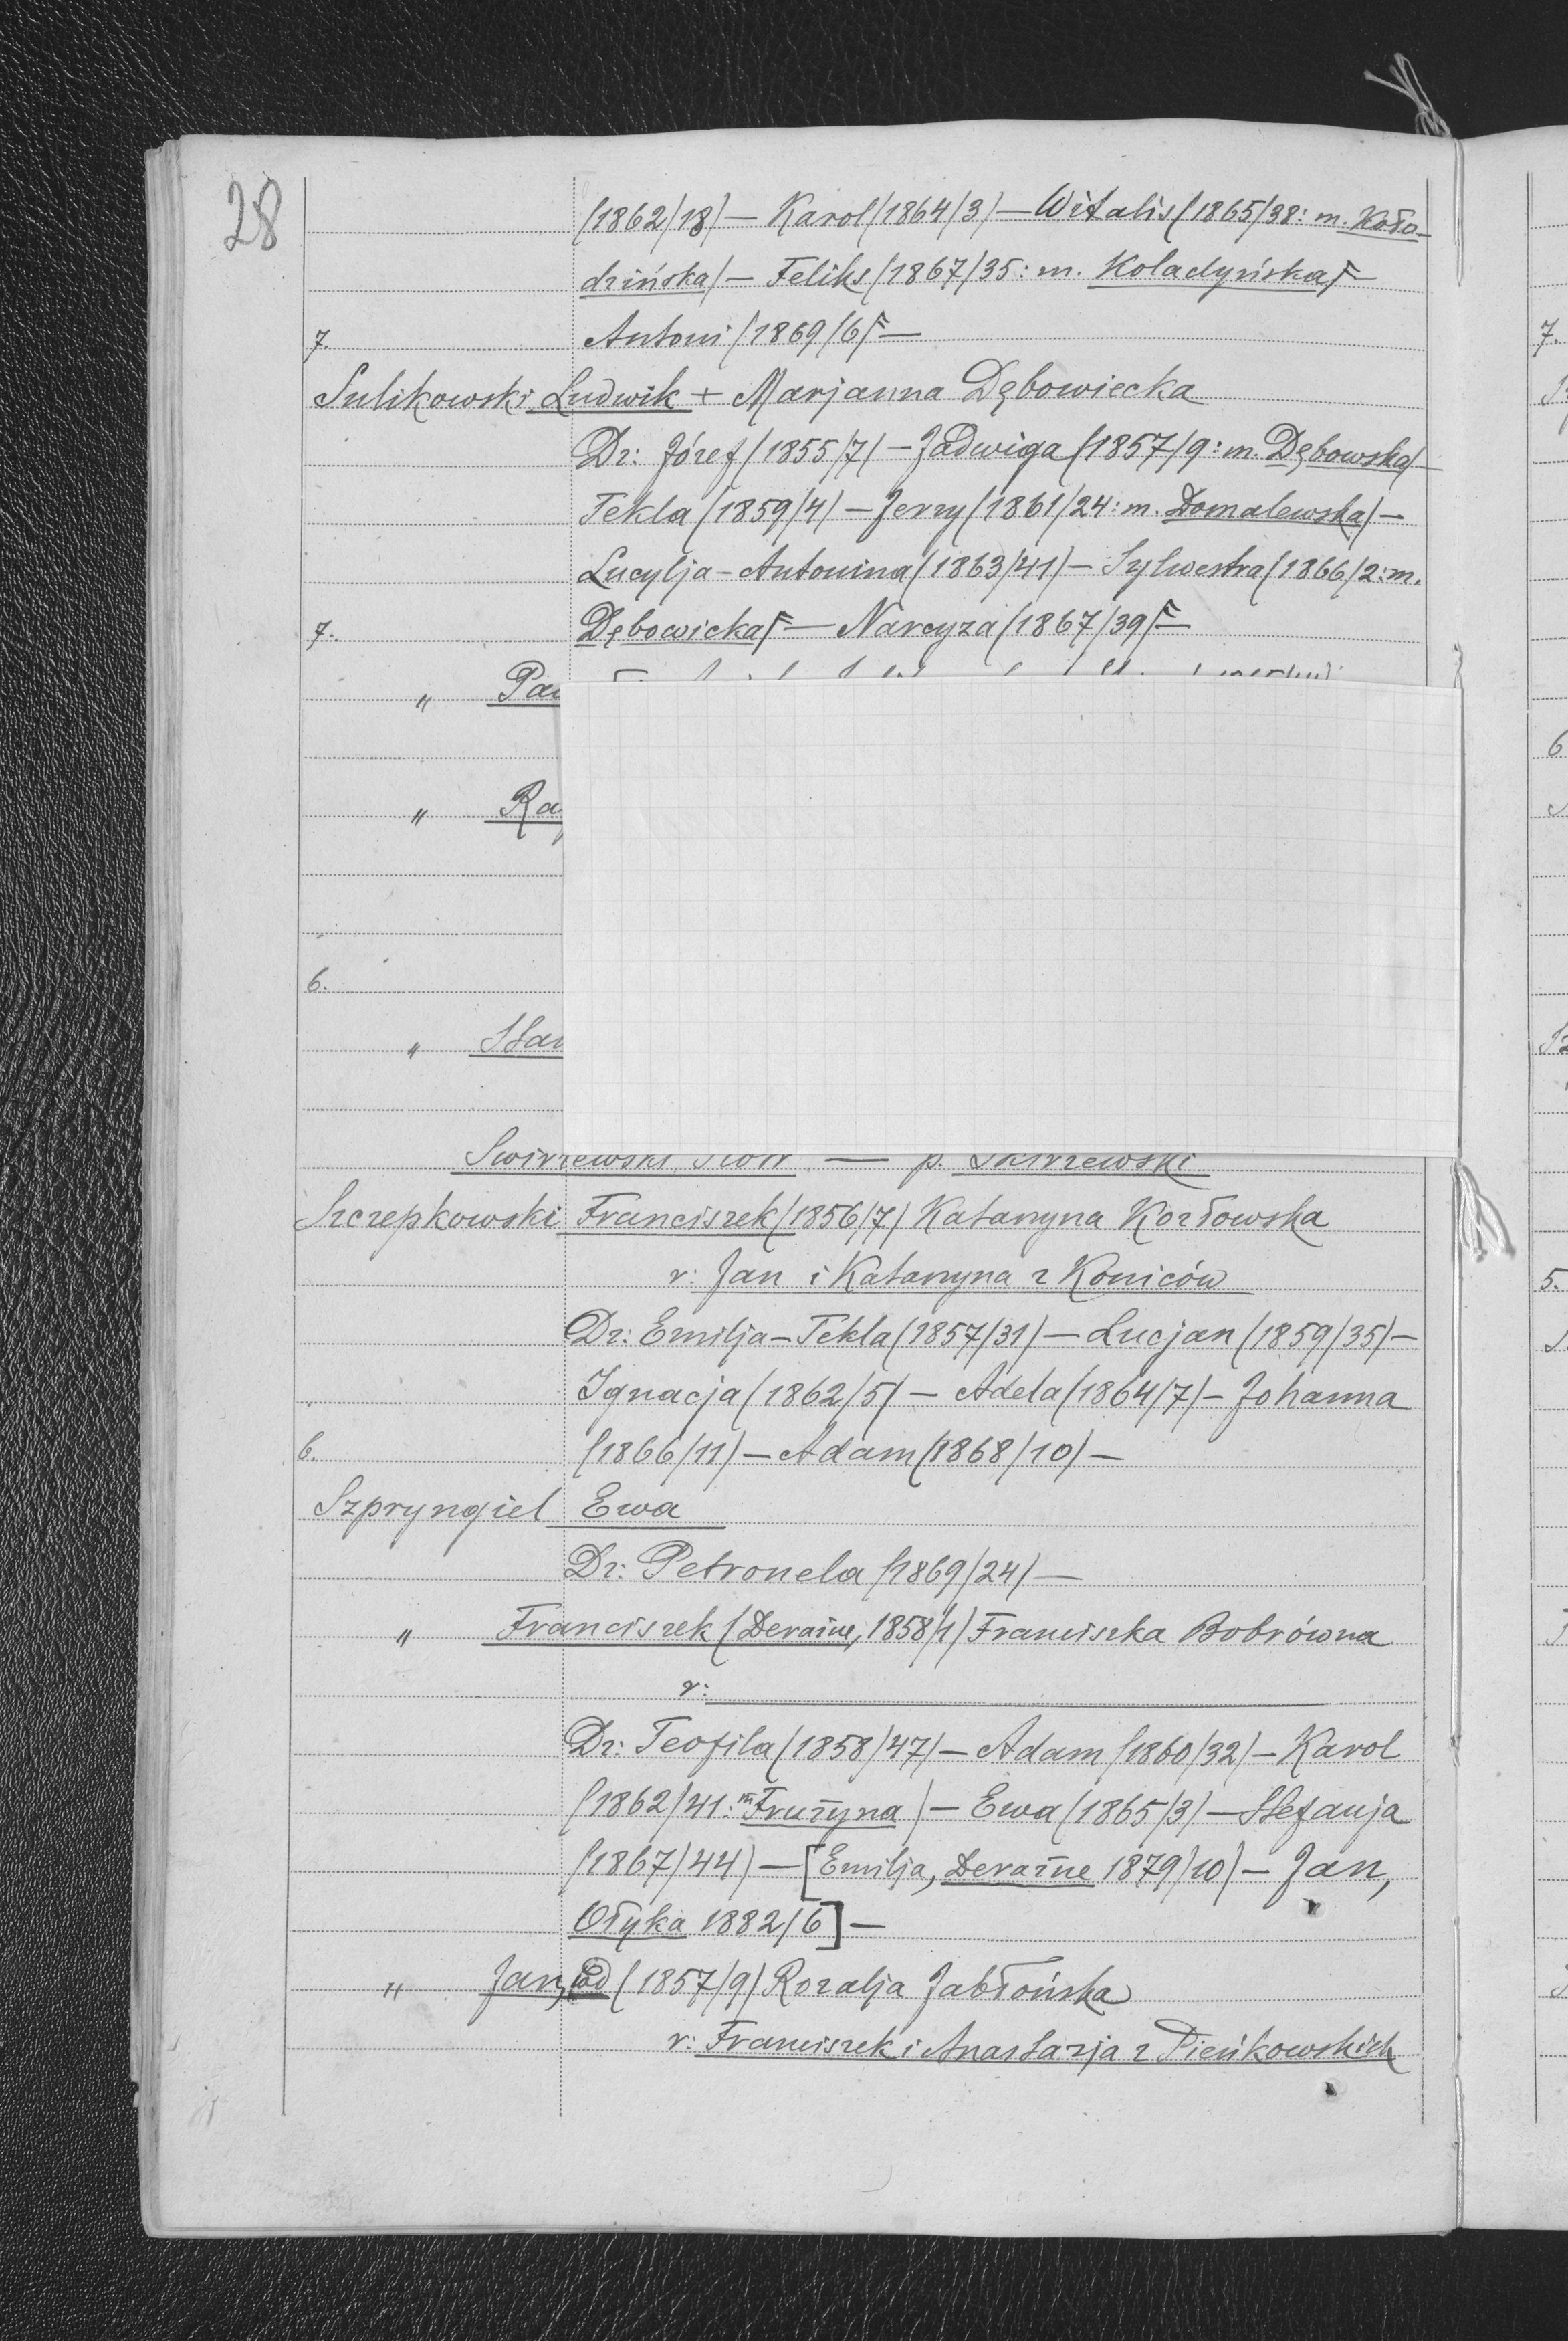 28
/1862/18/ — Karol /1864/3/ — Witalis /1865/38: m. Koło-
dzińska/ — Feliks /1867/35: m. Koladyńska/ —
7. Antoni /1869/6/ —
Sulikowski Ludwik + Marjanna Dębowiecka
Dz: Józef /1855/7/ — Jadwiga /1857/9: m. Dębowska/ —
Tekla /1859/4/ — Jerzy /1861/24: m. Domalewska/ —
Lucylja - Antonina /1863/41/ — Sylwestra /1866/2: m.
7. Dębowicka/ — Narcyza /1867/39/ —
"
"
6.
"
Swirzewski Piotr — p. Skirzewski
Szczepkowski Franciszek /1856/7/ Katarzyna Kozłowska
r: Jan i Katarzyna z Koniców
Dz: Emilja - Tekla /1857/31/ — Lucjan /1859/35/ —
Ignacja /1862/5/ — Adela /1864/7/ — Johanna
6. /1866/11/ — Adam /1868/10/ —
Szpryngiel Ewa
Dz: Petronela /1869/24/ —
" Franciszek /Deraźne, 1858/1/ Franciszka Bobrówna
r:
Dz: Teofila /1858/47/ — Adam /1860/32/ — Karol
/1862/41: m Frużyna/ — Ewa /1865/3/ — Stefanja
/1867/44/ — [Emilja, Deraźne 1879/10/ — Jan,
Ołyka 1882/6] —
" Jan, /1857/9/ Rozalja Jabłońska
r: Franciszek i Anastazja z Pieńkowskich
7.
6
5.